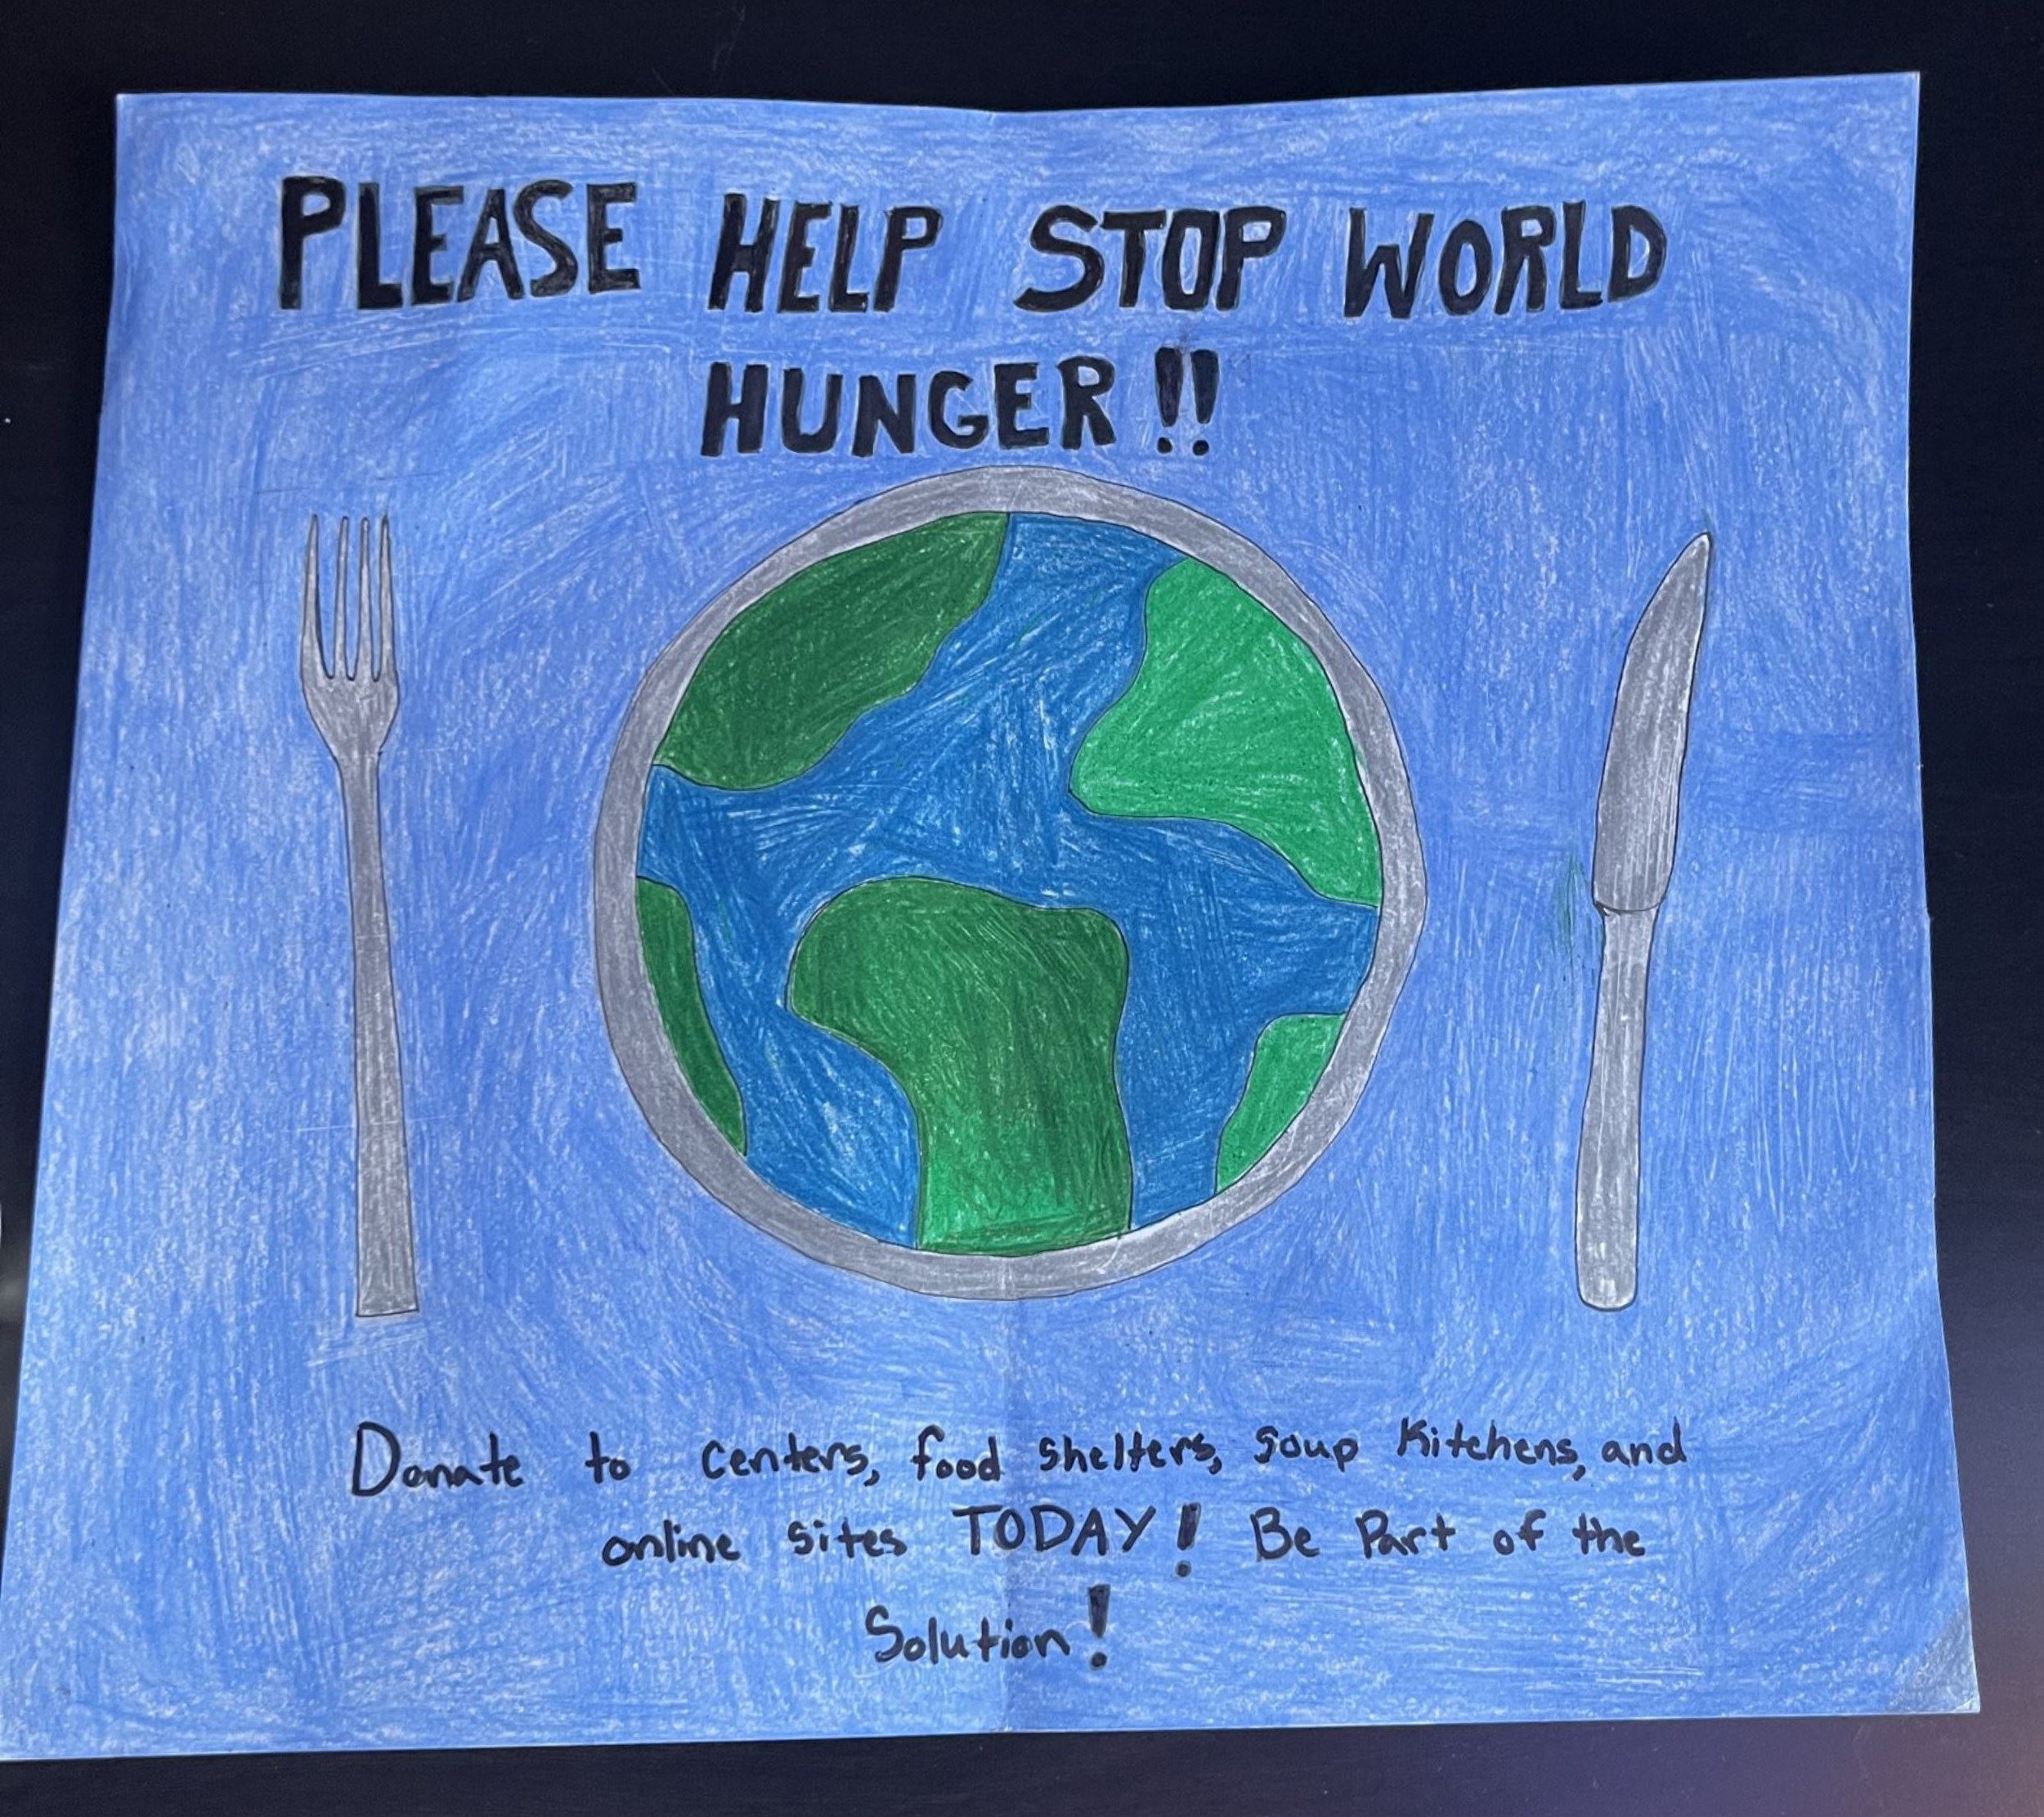 PLEASE HELP STOP WORLD
HUNGER!!
Donate to centers, food shelters, soup Kitchens, and
online sites TODAY! Be Part of the
Solution!